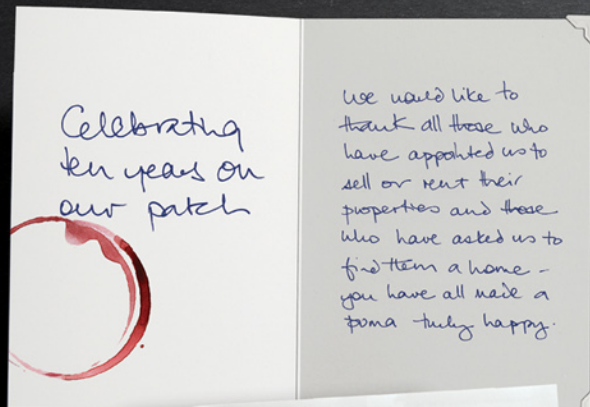 Celebrating
ten years on
our patch
we would like to
thank all those who
have appointed us to
sell or rent their
properties and those
who have asked us to
find them a home –
you have all made a
puma truly happy.